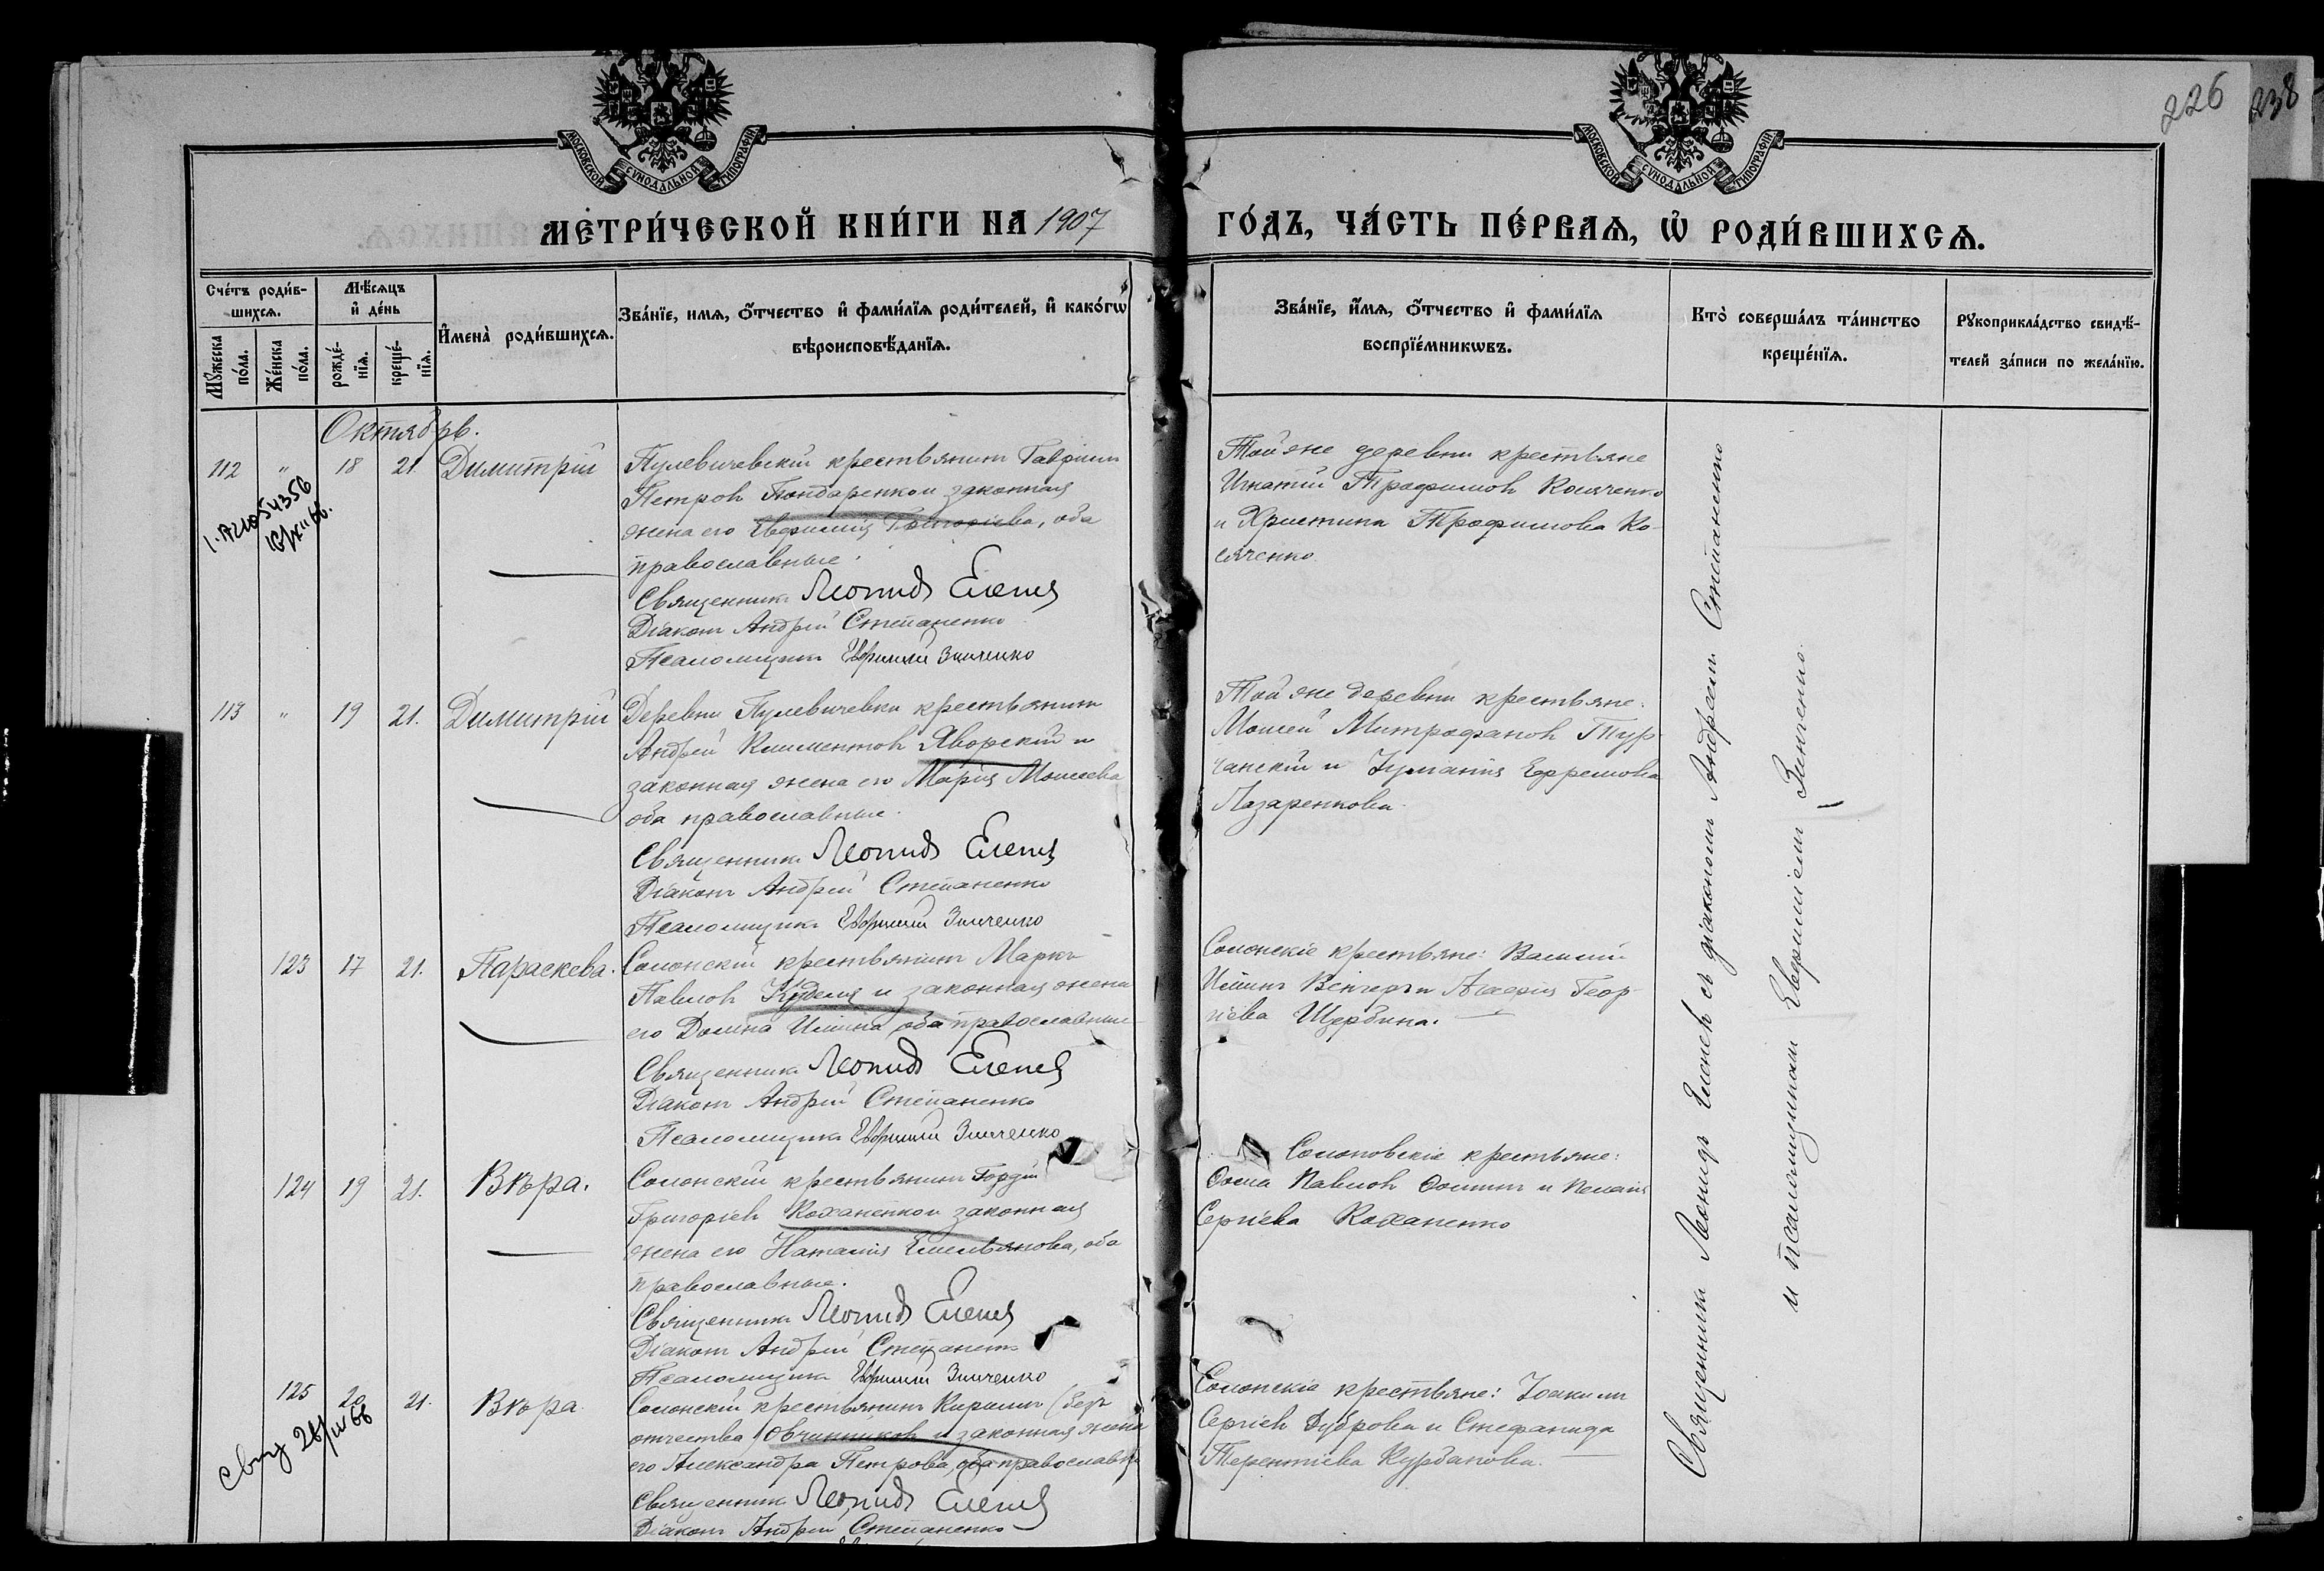 226
238
МОСКОВСКОЙ СѴНОДАЛЬНОЙ ТИПОГРАФІИ
МОСКОВСКОЙ СѴНОДАЛЬНОЙ ТИПОГРАФІИ
МЕТРИ́ЧЕСКОЙ КНИ́ГИ НА 1907
ГО́ДЪ, ЧА́СТЬ ПЕ́РВАѦ, Ѡ҆ РОДИ́ВШИХСѦ.
Сче́тъ роди́в-
шихсѧ.
Мꙋ́жеска по́ла.
Же́нска по́ла.
Мѣ́сѧцъ
и҆ де́нь
рожде́-нїѧ.
креще́-нїѧ.
И҆мена̀ роди́вшихсѧ.
Зва́нїе, имѧ, о҆́тчество и҆ фами́лїѧ роди́телей, и҆ како́гѡ
вѣроисповѣ́данїѧ.
Зва́нїе, и҆́мѧ, о҆́тчество и҆ фами́лїѧ
воспрїе́мникѡвъ.
Кто̀ соверша́лъ та́инство
креще́нїѧ.
Рꙋкоприкла́дство свидѣ́-
телей за́писи по жела́нїю.
Октябрь.
112 " 18 21. Димитрій
Пулевичевскій крестьянинъ Гавріилъ
Петровъ Бондаренко и законная
жена его Евфимія Григоріева, оба
православные.
Священникъ Леонидъ Еленевъ
Діаконъ Андрей Степаненко
Псаломщикъ Евфимій Зинченко
Той же деревни крестьяне
Игнатій Трофимовъ Косяченко
и Христина Трофимова Ко-
сяченко
113 " 19 21. Димитрій
Деревни Пулевичевки крестьянинъ
Андрей Климентовъ Яворскій и
законная жена его Марія Моисеева
оба православные.
Священникъ Леонидъ Еленевъ
Діаконъ Андрей Степаненко
Псаломщикъ Евфимій Зинченко
Той же деревни крестьяне:
Моисей Митрофановъ Тур-
чанскій и Іуліанія Ефремова
Лазаренкова.
123 17 21. Параскева.
Солонскій крестьянинъ Маркъ
Павловъ Кудела и законная жена
его Домна Ильина, оба православные
Священникъ Леонидъ Еленевъ
Діаконъ Андрей Степаненко
Псаломщикъ Евфимій Зинченко
Солонскіе крестьяне: Василій
Ильинъ Венгеръ и Георгіева Щербина.
124 19 21. Вѣра.
Солонскій крестьянинъ Гордій
Григоріевъ Коханенко и законная
жена его Наталія Емельянова, оба
православные.
Священникъ Леонидъ Еленевъ
Діаконъ Андрей Степаненко
Псаломщикъ Евфимій Зинченко
крестьяне:
Ѳома Павловъ Ѳоминъ и Пелагія
Сергіева Коханенко
125 20 21. Вѣра
Солонскій крестьянинъ Кириллъ (безъ
отчества) Овчинниковъ и законная жена
его Александра Петрова, оба православн
Священникъ Леонидъ Еленевъ
Діаконъ Андрей Степаненко
Солонскіе крестьяне: Іоакимъ
Сергіевъ Дуброва и Стефанида
Терентіева Курбанова.
Священникъ Леонидъ Еленевъ съ діакономъ Андреемъ Степаненко
и псаломщикомъ Евфиміемъ Зинченко.